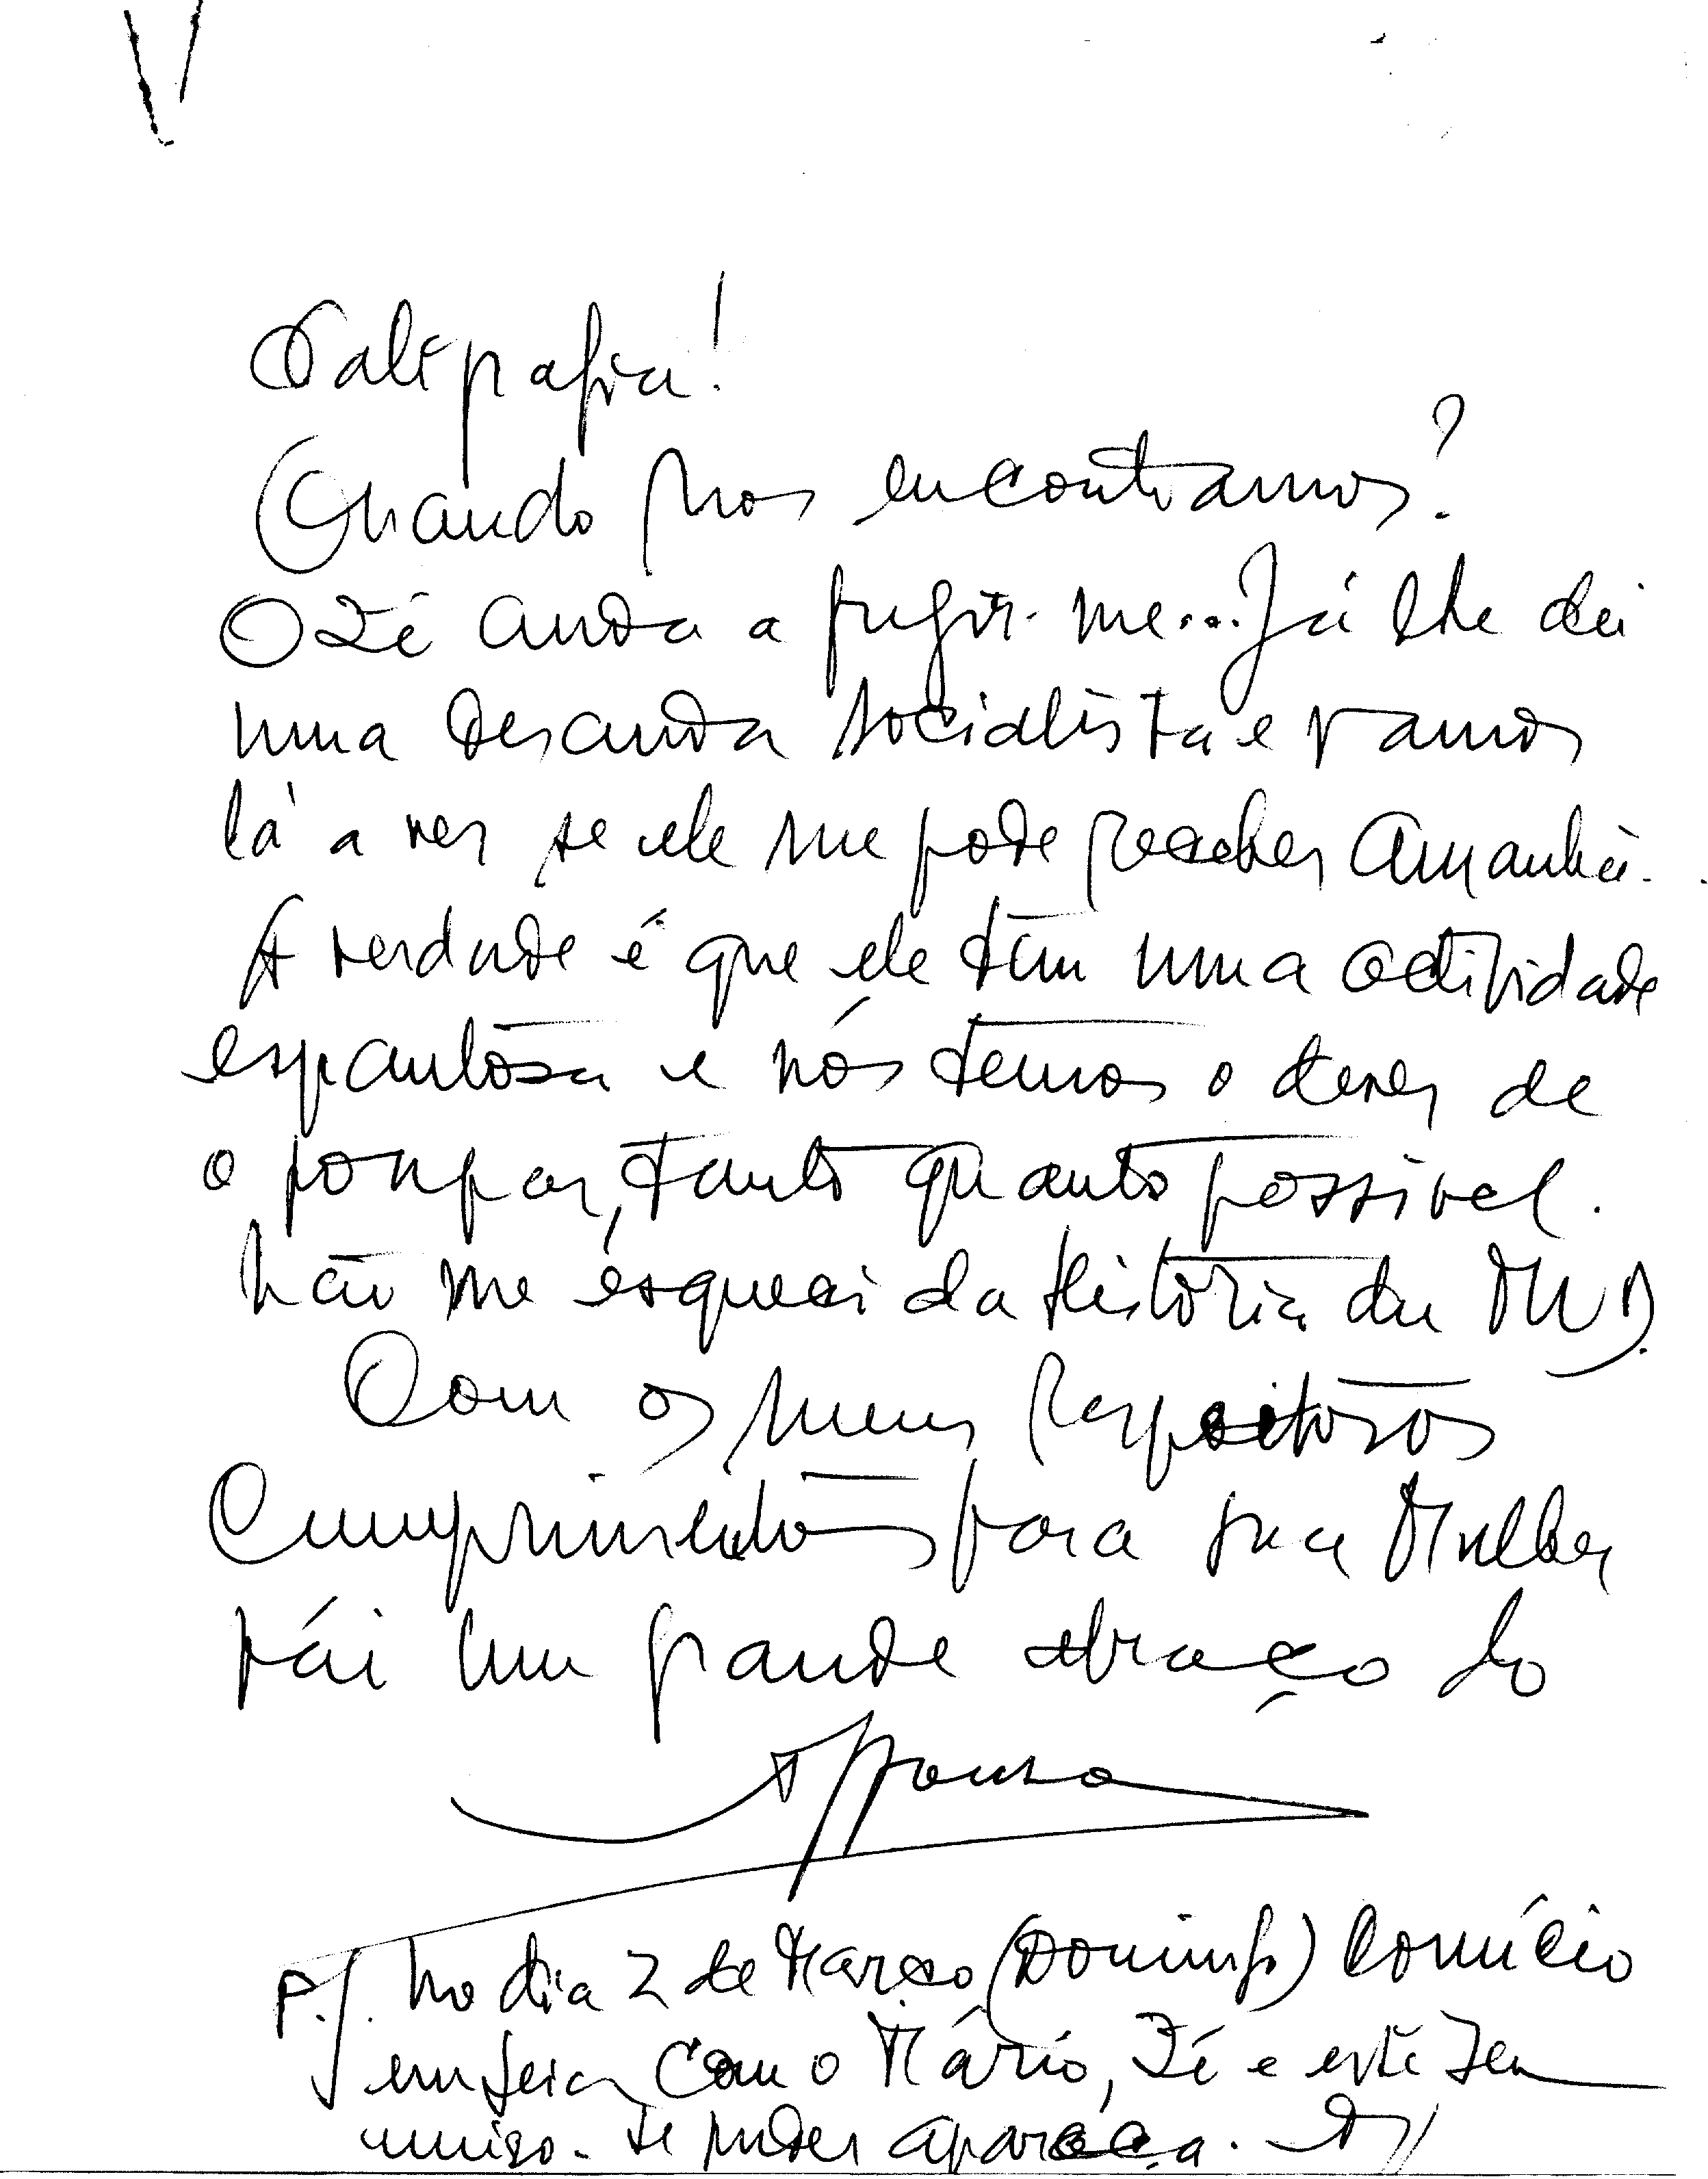 Quando nos encontramos?
O Zé anda a fugir-me... Já lhe dei
uma desanda socialista e vamos
lá a ver se ele me pode receber amanhã.
A verdade é que ele tem uma actividade
espantosa e nós temos o dever de
o poupar, tanto quanto possivel.
Não me esqueci da História da
Com os meus Respeitosos
Cumprimentos para sua Mulher
vái um grande abraço do
P.S. No dia 2 de Março (Domingo) Comício
em Seia com o Mário, Zé e este seu
amigo. Se puder apareça.